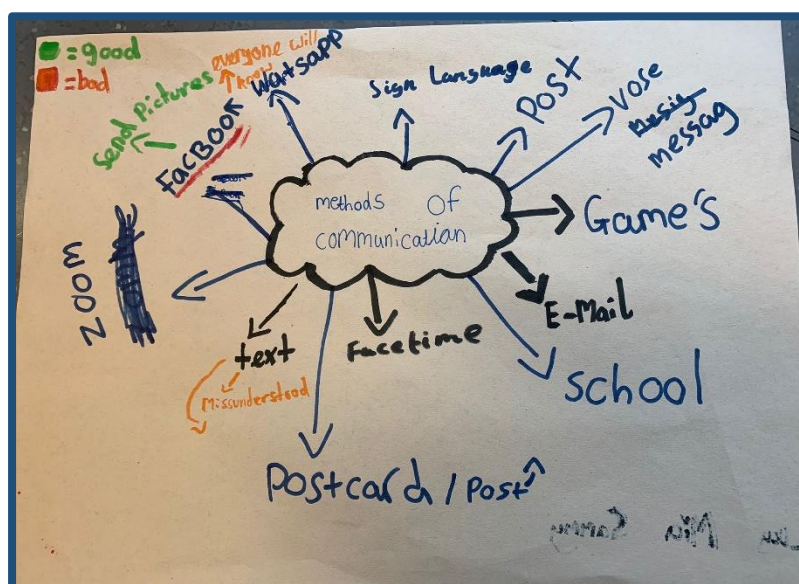 = good
= bad
everyone will
know
Watsapp
Send Pictures
FacBOOK
Sign Language
Post
Vose
messag
methods of
communication
Game's
E-Mail
School
Facetime
text
Missunderstood
Postcard / Post
ZOOM